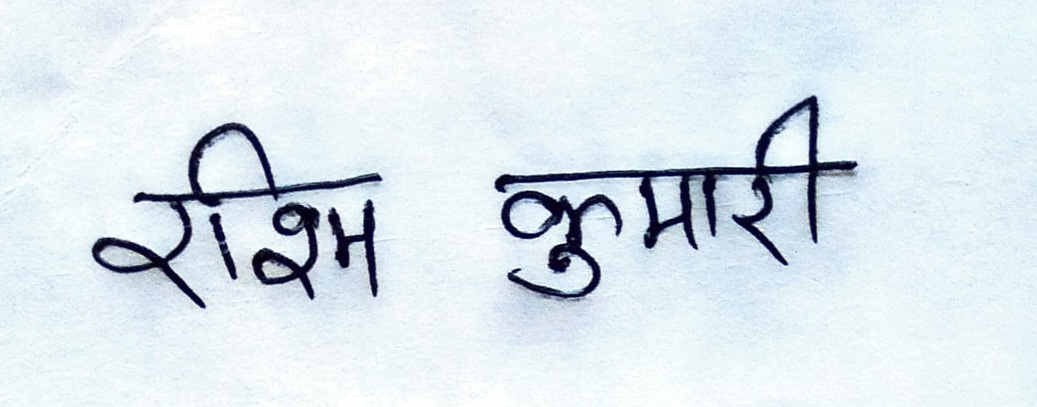 रश्मि कुमारी